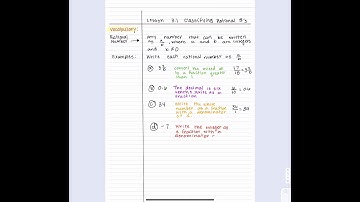 Lesson 3.1 Classifying Rational #'s
Vocabulary:
Rational Number → any number that can be written
by a/b, where a and b are integers
and b≠0
Examples: Write each rational number as a/b
(a) convert the mixed #
to a fraction greater
than 1
(b) 0.6 The decimal is six
tenths. Write as a
fraction.
6/10 = 0.6
(c) 34 Write the whole
number as a fraction
with a denominator
of 1.
34/1 = 34
(d) -7 Write the integer as
a fraction with a
denominator